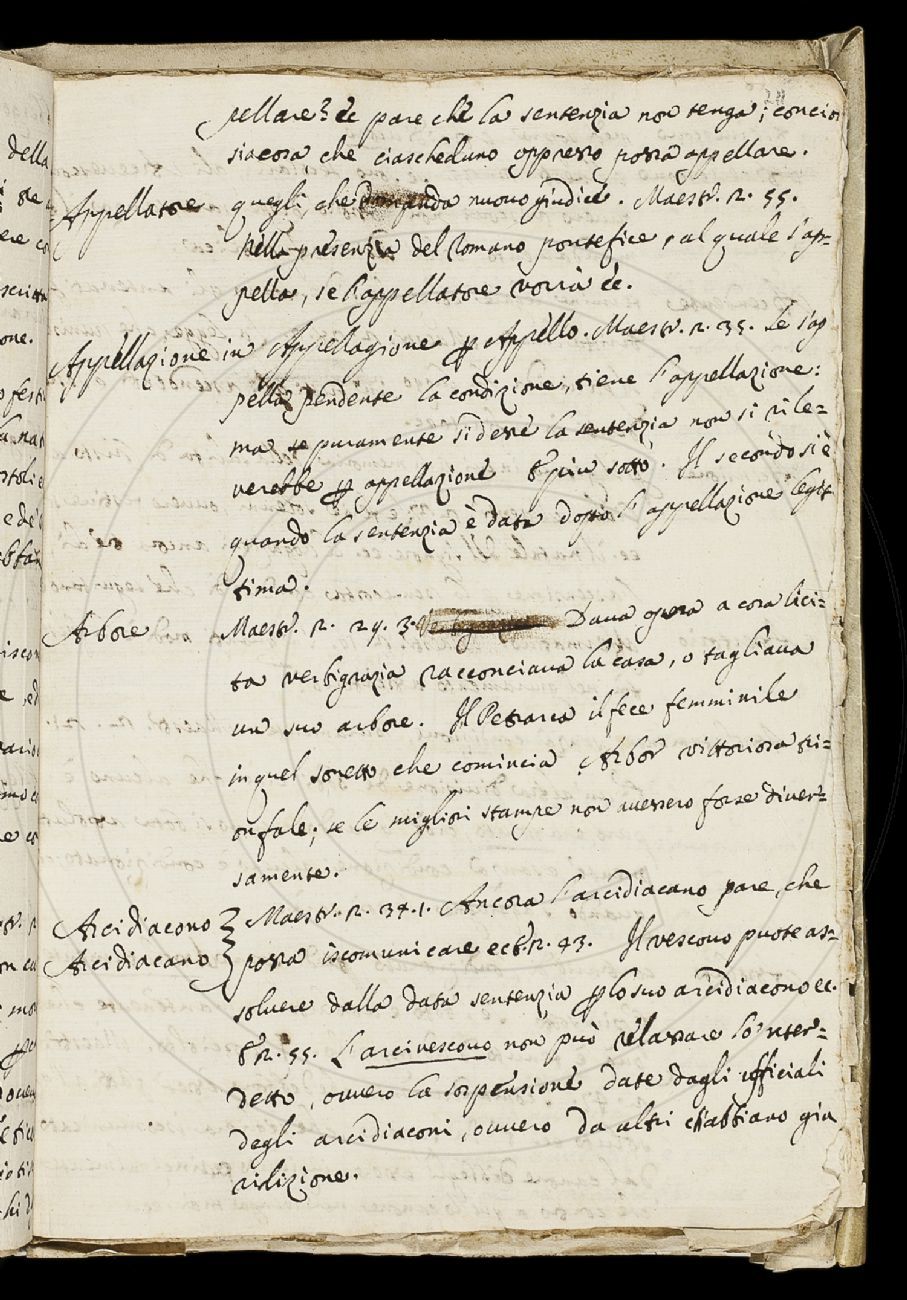 pellare? è pare che la sentenzia non tenga; concios
siacosa che ciascheduno oppresso possa appellare.
Appellatore quegli, che domanda nuovo giudice. Maestr. 2. 55.
Nella presenzia del Romano pontefice, al quale s'ap=
pella, se l'appellatore vorrà ec.
Appellazione in Appellagione ꝑ Appello. Maestr. 2. 35. Se s'ap
pella pendente la condizione, tiene l'appellazione:
ma se puramente si desse la sentenzia non si rile=
verebbe ꝑ appellazione & più sotto. Il secondo si è
quando la sentenzia è data doppo l'appellazione legit
tima.
Arbore Maestr. 2. 29. 3. Dava opera a cosa lici=
ta verbigrazia racconciava la casa, o tagliava
un suo arbore. Il Petrarca il fece femminile
in quel sonetto che comincia Arbor vittoriosa tri=
onfale; se le migliori stampe non avessero forse diver=
samente.
Arcidiacono } Maestr. 2. 34. 1. Ancora l'arcidiacano pare, che
Arcidiacano } possa iscomunicare ec & 2. 43. Il vescovo puote as=
solvere dalla data sentenzia ꝑ lo suo arcidiacono ec.
& 2. 55. L'arcivescovo non può rilassare lo 'nter=
detto, ovvero la sospensione date dagli ufficiali
degli arcidiaconi, ovvero da altri ch'abbiano giu
risdizione.